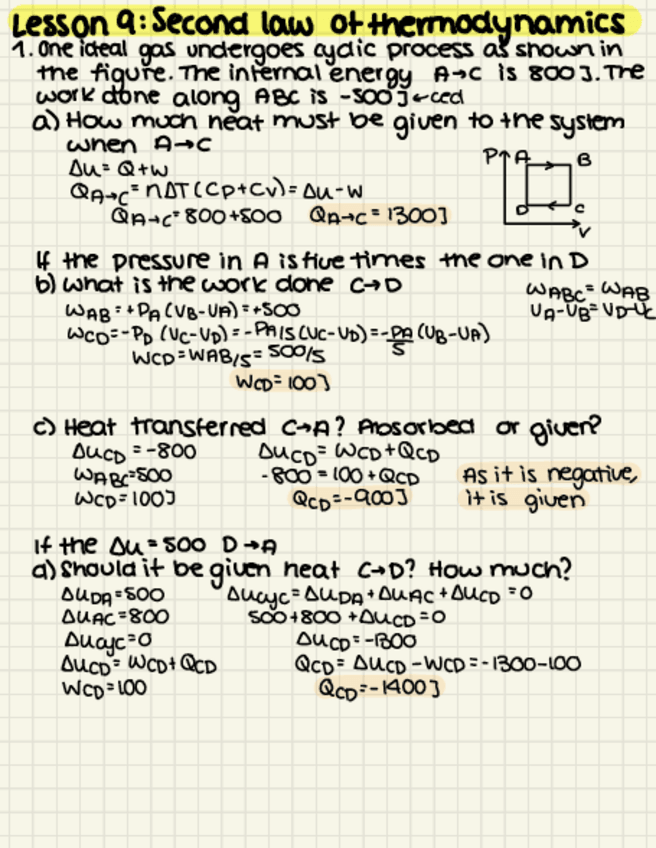 Lesson 9: Second law of thermodynamics
1. One ideal gas undergoes cyclic process as shown in
the figure. The internal energy A→C is 800J. The
work done along ABC is -500J ← ced
a) How much heat must be given to the system
when A→C
ΔU = Q+W
QA→C = nΔT(Cp+Cv) = ΔU-W
QA→C = 800+500 QA→C = 1300J
P A B
D C
V
If the pressure in A is five times the one in D
b) what is the work done C→D
WABC = WAB
VA-VB = VD-VC
WAB = +PA (VB-VA) = +500
WCD = -PD (VC-VD) = -PA/5 (VC-VD) = -PA/5 (VB-VA)
WCD = WAB/5 = 500/5
WCD = 100J
c) Heat transferred C→A? Absorbed or given?
ΔUCD = -800 ΔUCD = WCD+QCD
WABC = 500 -800 = 100+QCD
WCD = 100J QCD = -900J
As it is negative,
it is given
If the ΔU = 500 D→A
d) Should it be given heat C→D? How much?
ΔUDA = 500 ΔUcyc = ΔUDA+ΔUAC+ΔUCD = 0
ΔUAC = 800 500+800+ΔUCD = 0
ΔUcyc = 0 ΔUCD = -1300
ΔUCD = WCD+QCD QCD = ΔUCD-WCD = -1300-100
WCD = 100 QCD = -1400J